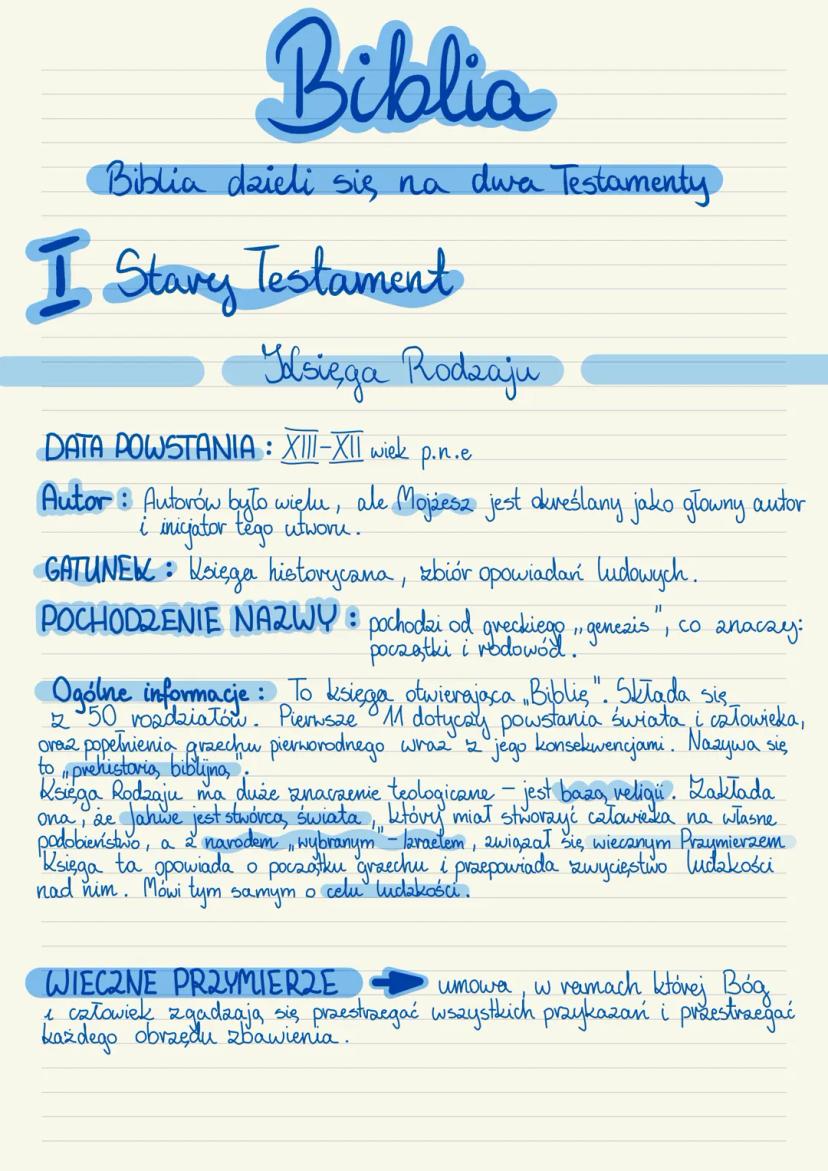 Biblia
Biblia dzieli się na dwa Testamenty
I Stary Testament
Księga Rodzaju
DATA POWSTANIA : XIII-XII wiek p.n.e
Autor : Autorów było wielu, ale Mojżesz jest określany jako głowny autor
i inicjator tego utworu.
GATUNEK : Księga historyczna, zbiór opowiadań ludowych.
POCHODZENIE NAZWY : pochodzi od greckiego „genezis", co znaczy:
początki i rodowód.
Ogólne informacje : To księga otwierająca „Biblię". Składa się
z 50 rozdziałów. Pierwsze 11 dotyczy powstania świata i człowieka,
oraz popełnienia grzechu pierworodnego wraz z jego konsekwencjami. Nazywa się
to „prehistorią biblijną".
Księga Rodzaju ma duże znaczenie teologiczne - jest bazą religii. Zakłada
ona, że Jahwe jest stwórcą świata, który miał stworzyć człowieka na własne
podobieństwo, a z narodem „wybranym" - Izraelem, związał się wiecznym Przymierzem
Księga ta opowiada o początku grzechu i przepowiada zwycięstwo ludzkości
nad nim. Mówi tym samym o celu ludzkości.
WIECZNE PRZYMIERZE → umowa, w ramach której Bóg
i człowiek zgadzają się przestrzegać wszystkich przykazań i przestrzegać
każdego obrzędu zbawienia.